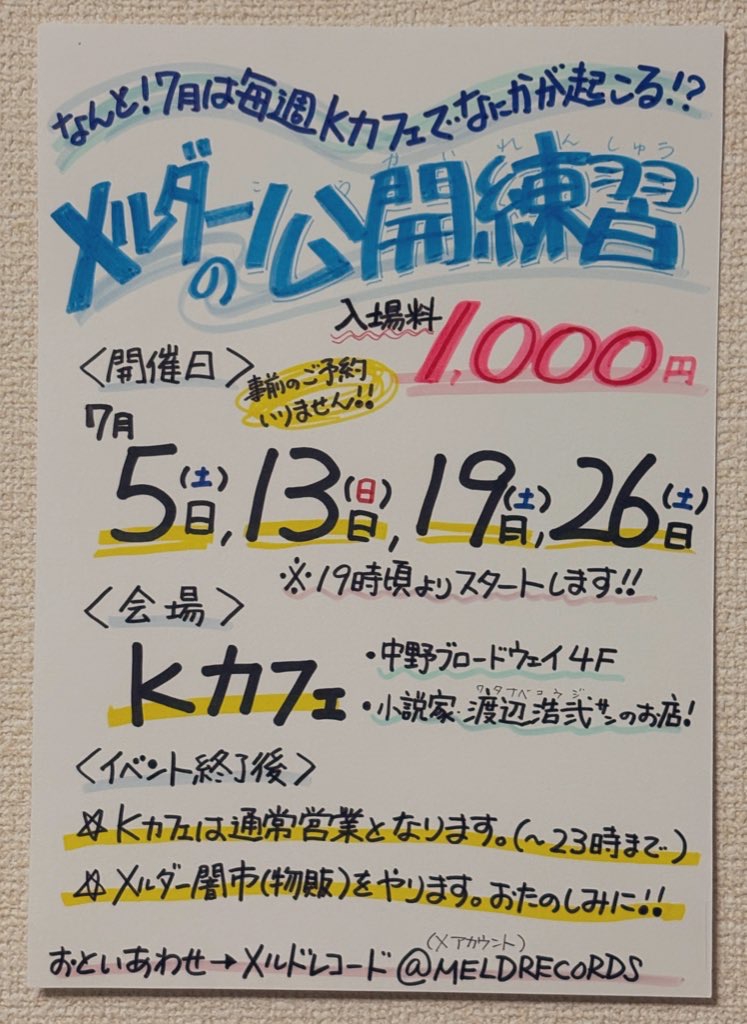 なんと!7月は毎週Kカフェでなにかが起こる!?
こうかいれんしゅう
メルダーの公開練習
入場料 1,000円
<開催日>
事前のご予約
いりません!!
7月
5日(土),13日(日),19日(土),26日(土)
※19時頃よりスタートします!!
<会場>
Kカフェ
・中野ブロードウェイ4F
ワタナベコウジ
・小説家・渡辺浩弐サンのお店!
<イベント終了後>
☆Kカフェは通常営業となります。(~23時まで)
☆メルダー闇市(物販)をやります。おたのしみに!!
(Xアカウント)
おといあわせ→メルドレコード @MELDRECORDS